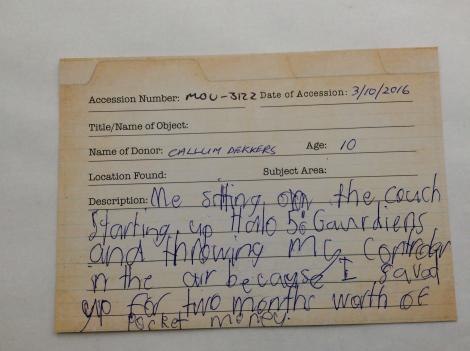 Accession Number: MOU-3122 Date of Accession: 3/10/2016
Title/Name of Object:
Name of Donor: CALLUM DEKKERS Age: 10
Location Found: Subject Area:
Description: Me sitting on the couch
Starting up Halo 5: Gaurdiens
and throwing my controler
in the air because I saved
up for two months worth of
pocket money.